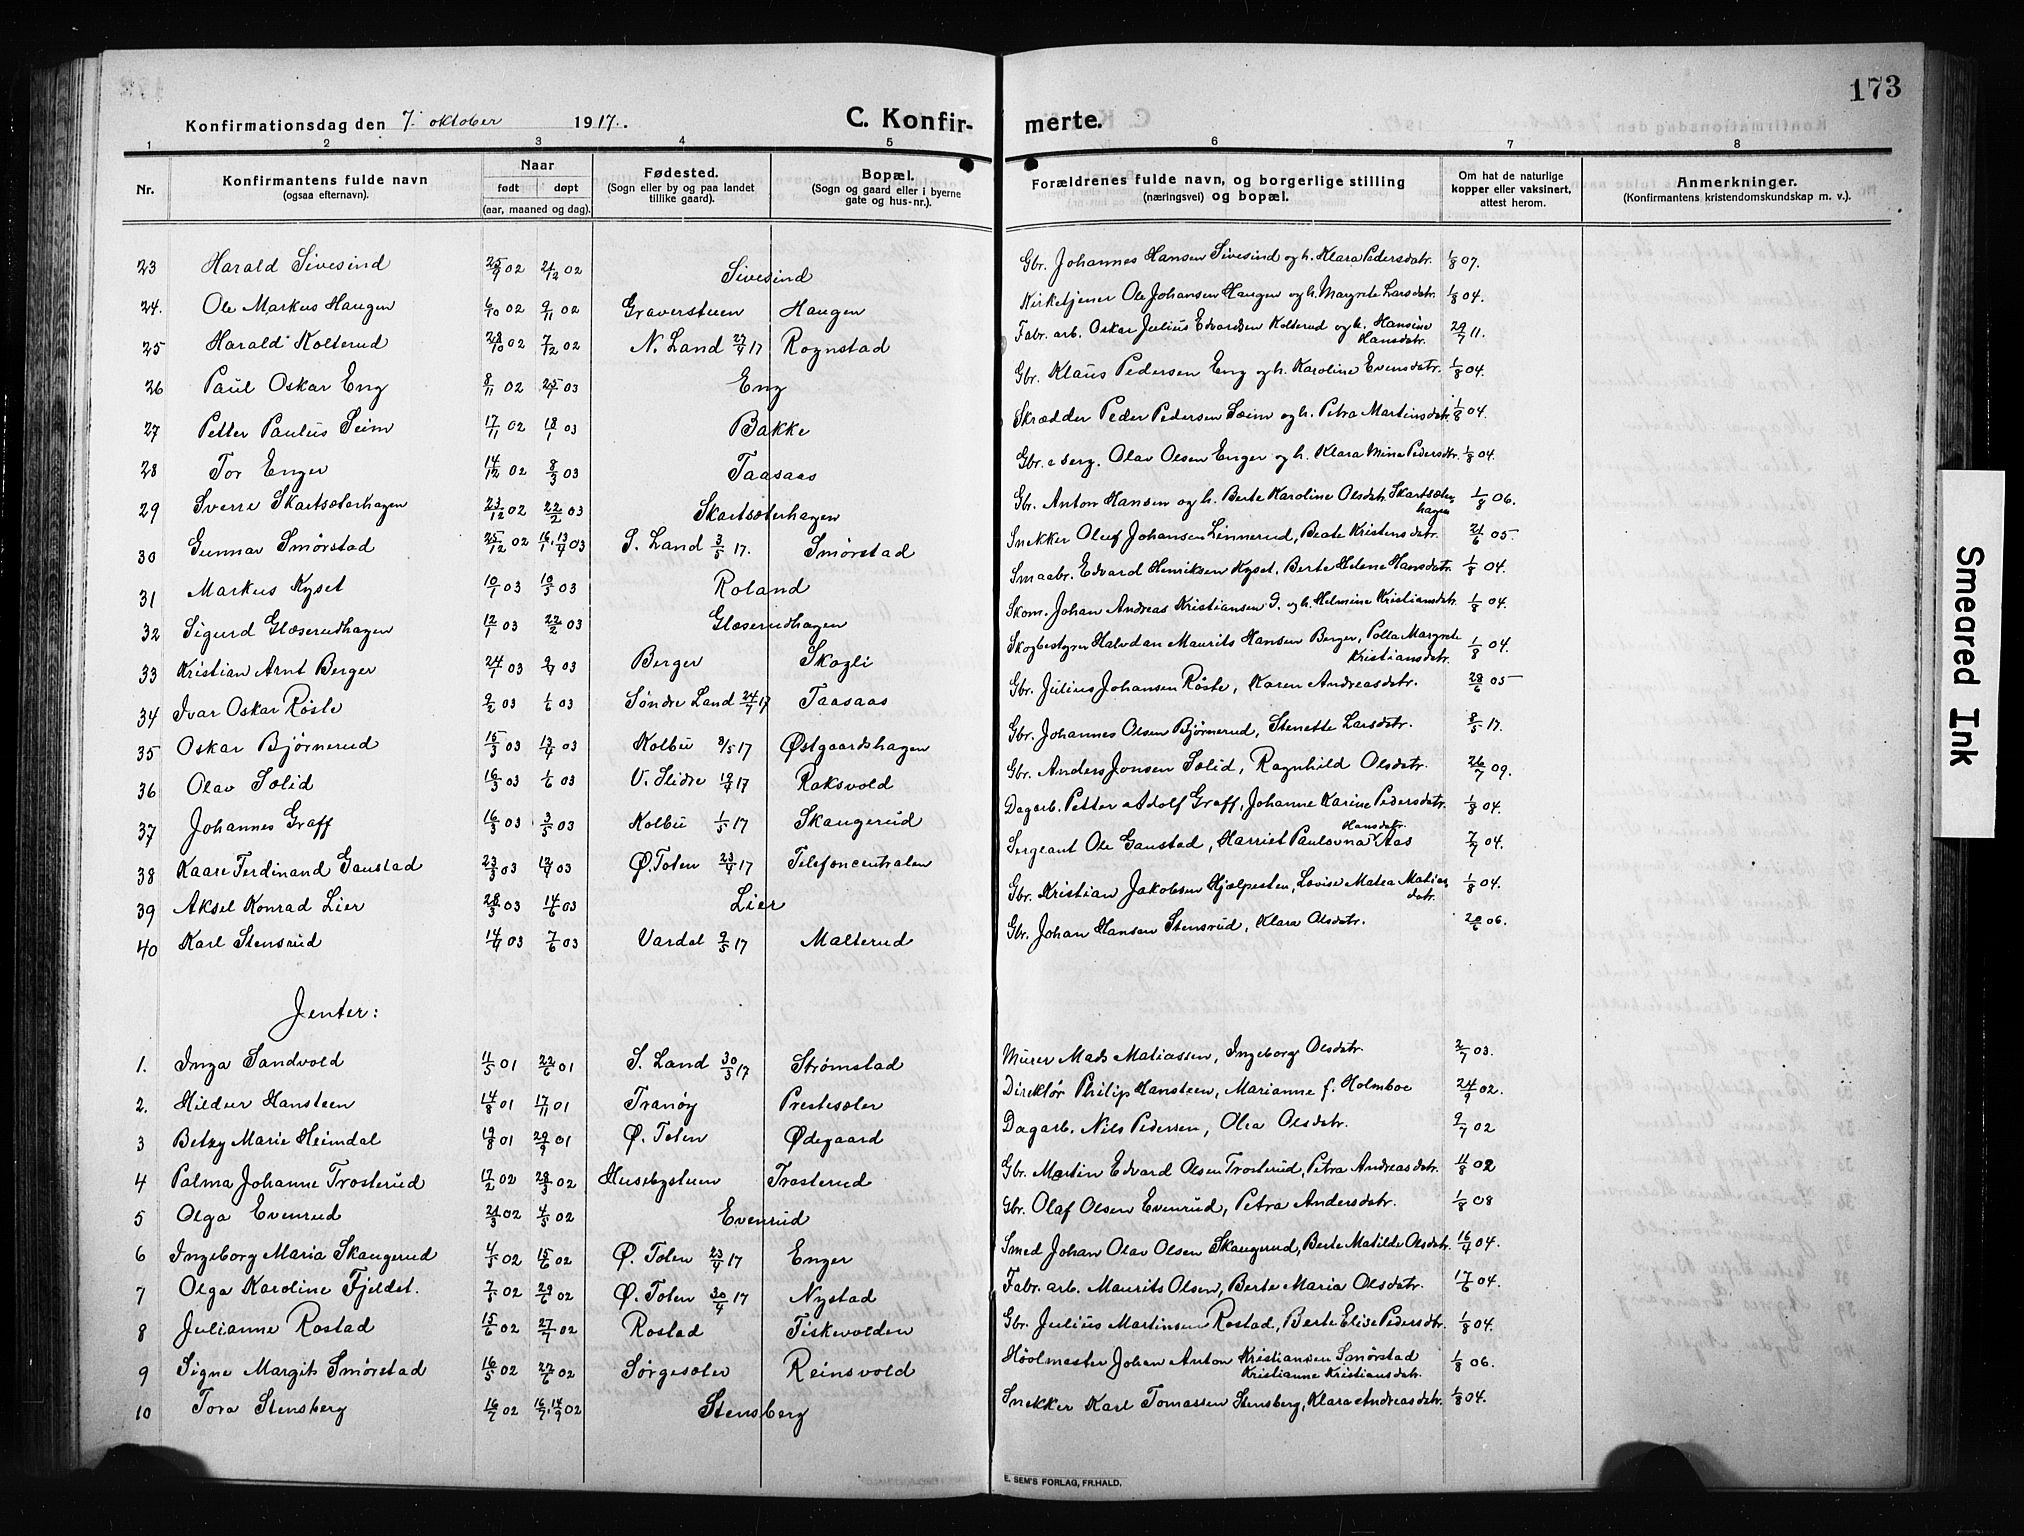 173
Konfirmationsdag den 7. oktober 1917. C. Konfir- merte.
1 2 3 4 5 6 7 8
Nr. Konfirmantens fulde navn (ogsaa efternavn). Naar født døpt (aar, maaned og dag). Fødested. (Sogn eller by og paa landet tillike gaard). Bopæl. (Sogn og gaard eller i byerne gate og hus-nr.). Forældrenes fulde navn, og borgerlige stilling (næringsvei) og bopæl. Om hat de naturlige kopper eller vaksinert, attest herom. Anmerkninger. (Konfirmantens kristendomskundskap m. v.).
23 Harald Sivesind 25/9 02 21/12 02 Sivesind Gbr. Johannes Hansen Sivesind og h. Klara Pedersdatr. 1/8 07.
24. Ole Markus Haugen 6/10 02 9/11 02 Graversteen Haugen Kirketjener Ole Johansen Haugen og h. Margrete Larsdatr. 1/8 04.
25 Harald Kolterud 28/10 02 7/12 02 N. Land 27/4 17 Rognstad Fabr. arb. Oskar Julius Edvardsen Kolterud og h. Hansine Hansdatr. 29/7 11.
26 Paul Oskar Eng 8/11 02 25/1 03 Eng Gbr. Klaus Pedersen Eng og h. Karoline Evensdatr. 1/8 04.
27 Petter Paulus Seim 17/11 02 18/1 03 Bakke Skrædder Peder Pedersen Seim og h. Petra Martinsdatr. 1/8 04.
28 Tor Enger 14/12 02 8/3 03 Taasaas Gbr. & serg. Olav Olsen Enger og h. Klara Mine Pedersdtr. 1/8 04.
29 Sverre Skartsæterhagen 23/12 02 22/2 03 Skartsæterhagen Gbr. Anton Hansen og h. Berte Karoline Olsdatr. Skartsæterhagen 1/8 06.
30 Gunnar Smørstad 25/12 02 16/1, 13/4 03 S. Land 3/5 17. Smørstad Snekker Oluf Johansen Linnerud, Beate Kristensdatr. 21/6 05
31 Markus Kyset 10/1 03 10/5 03 Roland Smaabr. Edvard Henriksen Kyset, Berte Helene Hansdatr. 1/8 04.
32 Sigurd Glæserudhagen 12/1 03 22/2 03 Glæserudhagen Skom. Johan Andreas Kristiansen G. og h. Helmine Kristiansdatr. 1/8 04.
33 Kristian Arnt Berger 24/1 03 9/4 03 Berger Skogli Skogbestyrer Halvdan Maurits Hansen Berger, Polla Margrete Kristiansdatr. 1/8 04.
34 Ivar Oskar Røste 9/2 03 1/6 03 Søndre Land 24/4 17 Taasaas Gbr. Julius Johansen Røste, Karen Andreasdatr. 28/6 05
35 Oskar Bjørnerud 15/3 03 13/4 03 Kolbu 8/5 17 Østgaardshagen Gbr. Johannes Olsen Bjørnerud, Stenette Larsdatr. 8/5 17.
36 Olav Solid 16/3 03 1/6 03 V. Slidre 19/4 17 Raksvold Gbr. Anders Jonsen Solid, Ragnhild Olsdatr. 26/7 09.
37 Johannes Graff 16/3 03 3/5 03 Kolbu 1/5 17 Skaugerud Dagarb. Petter Adolf Graff, Johanne Karine Pedersdatr. 1/8 04.
38 Kaare Ferdinand Gaustad 23/3 03 12/4 03 Ø. Toten 23/4 17 Telefoncentralen Sergeant Ole Gaustad, Harriet Paulovna Hansdatr. Aas 7/7 04.
39 Aksel Konrad Lier 28/3 03 14/6 03 Lier Gbr. Kristian Jakobsen Hjælpesten, Lovise Matea Matiasdatr. 1/8 04.
40 Karl Stensrud 14/4 03 7/6 03 Vardal 9/5 17 Malterud Gbr. Johan Hansen Stensrud, Klara Olsdatr. 20/6 06.
Jenter:
1. Inga Sandvold 11/5 01 22/6 01 S. Land 30/3 17 Strømstad Murer Mads Matiassen, Ingeborg Olsdatr. 2/7 03.
2. Hildur Hansteen 14/8 01 17/11 01 Tranøy Prestesæter Direktør Philip Hansteen, Marianne f. Holmboe 24/9 02.
3 Betzy Marie Heimdal 19/8 01 29/9 01 Ø. Toten Ødegaard Dagarb. Nils Pedersen, Olea Olsdatr. 9/7 02
4 Palma Johanne Trosterud 12/2 02 28/3 02 Husebysteen Trosterud Gbr. Martin Edvard Olsen Trosterud, Petra Andreasdatr. 11/8 02
5 Olga Evenrud 21/3 02 4/5 02 Evenrud Gbr. Olaf Olsen Evenrud, Petra Andersdatr. 1/8 08
6 Ingeborg Maria Skaugerud 4/5 02 15/6 02 Ø. Toten 23/4 17 Enger Smed Johan Olav Olsen Skaugerud, Berte Matilde Olsdatr. 16/4 04.
7 Olga Karoline Fjeldet. 7/5 02 29/6 02 Ø. Toten 30/4 17 Nystad Fabr. arb. Maurits Olsen, Berte Maria Olsdatr. 17/6 04.
8 Julianne Rostad 15/6 02 27/7 02 Rostad Fiskevolden Gbr. Julius Martinsen Rostad, Berte Elise Pedersdtr. 1/8 04.
9 Signe Margit Smørstad 16/5 02 22/6 02 Sørgesæter Reinsvold Høolmester Johan Anton Kristiansen Smørstad Kristianne Kristiansdatr. 1/8 06.
10 Tora Stensberg 16/7 02 16/7, 14/9 02 Stensberg Snekker Karl Tomassen Stensberg, Klara Andreasdatr. 1/8 04.
E. SEM'S FORLAG, FR.HALD.
Smeared Ink